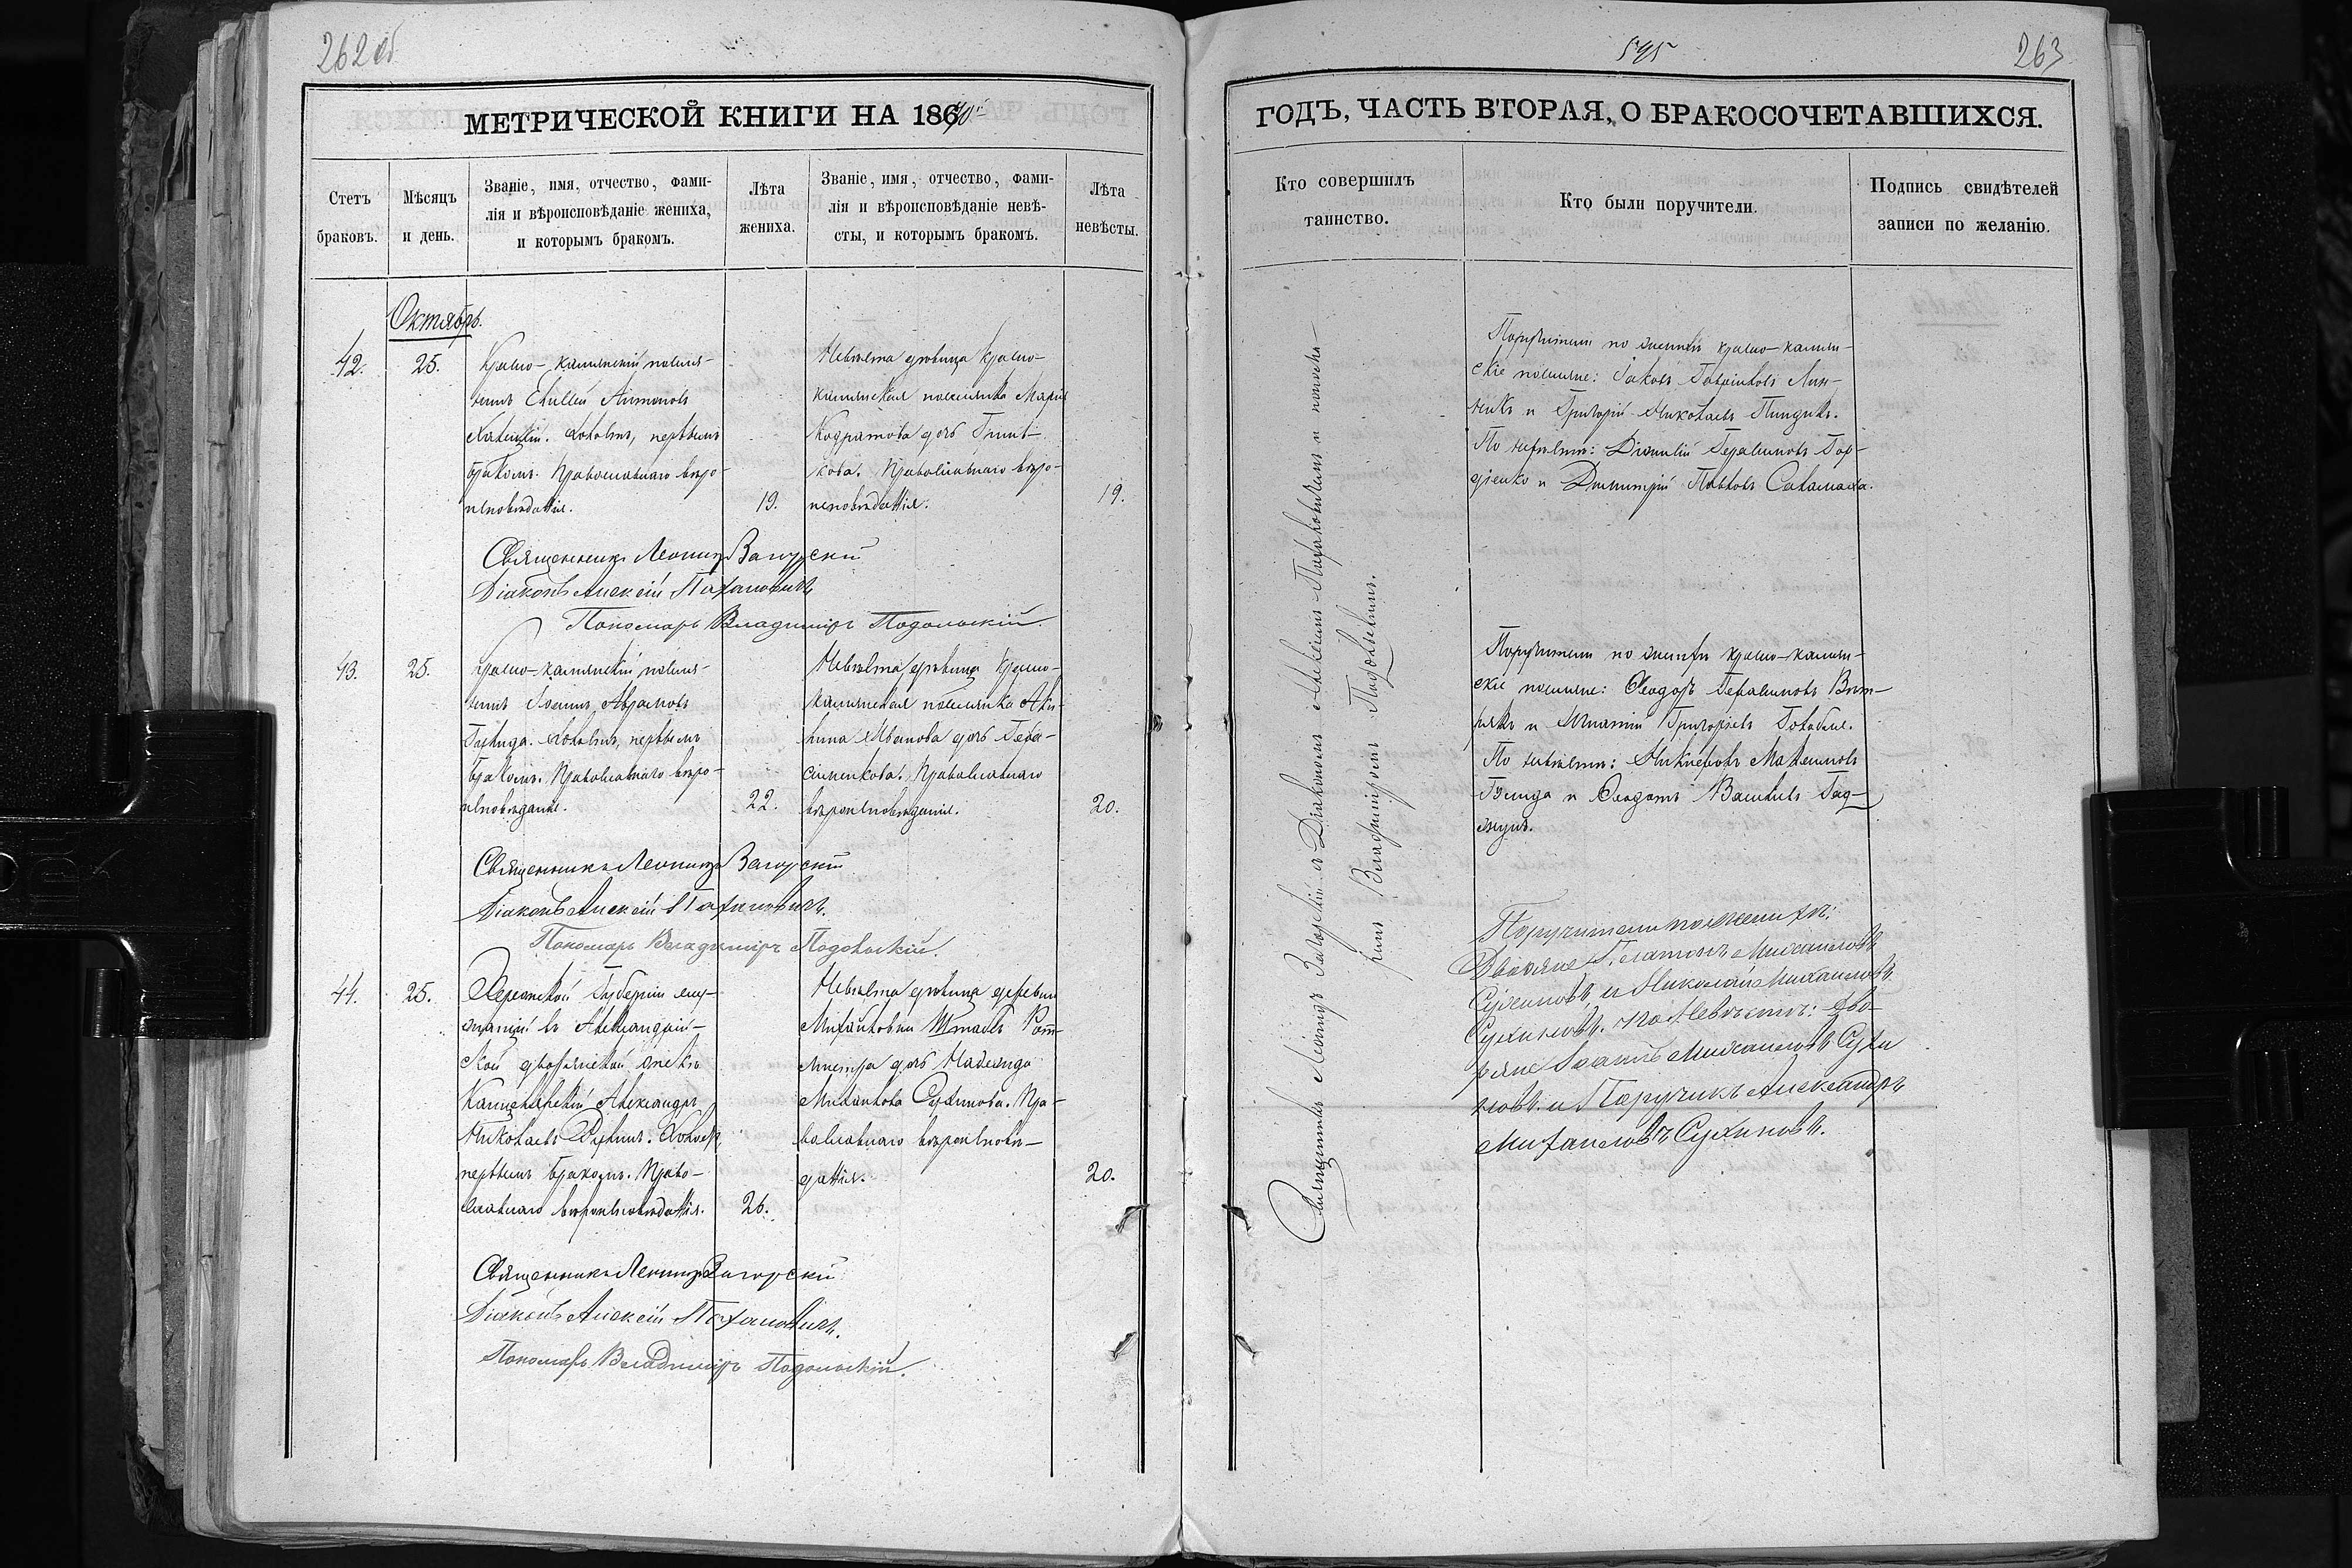 262 об
МЕТРИЧЕСКОЙ КНИГИ НА 1870й
Счетъ браковъ.
Мѣсяцъ и день.
Званіе, имя, отчество, фами-
лія и вѣроисповѣданіе жениха,
и которымъ бракомъ.
Лѣта
жениха.
Званіе, имя, отчество, фами-
лія и вѣроисповѣданіе невѣ-
сты, и которымъ бракомъ.
Лѣта
невѣсты.
Октябрь.
42.
25.
Красно-каменскій поселя-
нинъ
Холостъ, первымъ
бракомъ. Православнаго вѣро-
исповѣданія.
19.
Невѣста дѣвица красно-
каменская поселянка Марія
Кодратова дочь
Православнаго вѣро-
исповѣданія.
19.
Священникъ Леонидъ Загорскій
Діаконъ Алексій Парановичъ
Пономарь Владиміръ Подольскій.
43.
25.
Красно-каменскій поселя-
нинъ Іоаннъ Абрамовъ
Холостъ, первымъ
бракомъ. Православнаго вѣро-
исповѣданія.
22.
Невѣста дѣвица красно-
каменская поселянка Аку-
лина Иванова дочь Гера-
сименкова. Православнаго
вѣроисповѣданія.
20.
Священникъ Леонидъ Загорскій
Діаконъ Алексій Парановичъ.
Пономарь Владиміръ Подольскій.
44.
25.
Херсонской Губерніи слу-
жащій въ Александрій-
ской дворянской опекѣ
Канцелярскій Александръ
Николаевъ Холостъ,
первымъ бракомъ. Право-
славнаго вѣроисповѣданія.
26.
Невѣста дѣвица деревни
Михайловки Штабсъ Рот-
мистра дочь Надежда
Михайлова Сухинова. Пра-
вославнаго вѣроисповѣ-
данія.
20.
Священникъ Леонидъ Загорскій
Діаконъ Алексій Парановичъ.
Пономарь Владиміръ Подольскій.
595
263
ГОДЪ, ЧАСТЬ ВТОРАЯ, О БРАКОСОЧЕТАВШИХСЯ.
Кто совершилъ
таинство.
Кто были поручители.
Подпись свидѣтелей
записи по желанію.
Священникъ Леонидъ Загорскій съ Діакономъ Алексіемъ Парановичемъ и понома-
ремъ Владиміромъ Подольскимъ.
Поручители по женихѣ красно-камен-
скіе поселяне: Іаковъ Гавріиловъ Лин-
никъ и Григорій Николаевъ Пиндикъ.
По невѣстѣ: Діонисій Герасимовъ Гор-
діенко и Димитрій Павловъ Саламаха.
Поручители по женихѣ красно-камен-
скіе поселяне: Ѳеодоръ Герасимовъ Вит-
рякъ и Игнатій Григорьевъ
По невѣстѣ: Никифоръ Максимовъ
и Ѳеодотъ Васильевъ Гад-
жунъ.
Поручители по женихѣ:
Дворяне Платонъ Михаиловъ
Сухиновъ и Николай Михаиловъ
Сухиновъ. по Невѣстѣ: дво-
ряне Іоаннъ Михаиловъ Сухи
новъ и Поручикъ Александръ
Михаиловъ Сухиновъ.